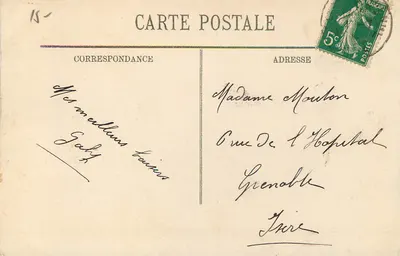 15-
CARTE POSTALE
5c
CORRESPONDANCE
ADRESSE
Mes meilleurs baisers
Gaby
Madame Mouton
6 rue de l'Hopital
Grenoble
Isère